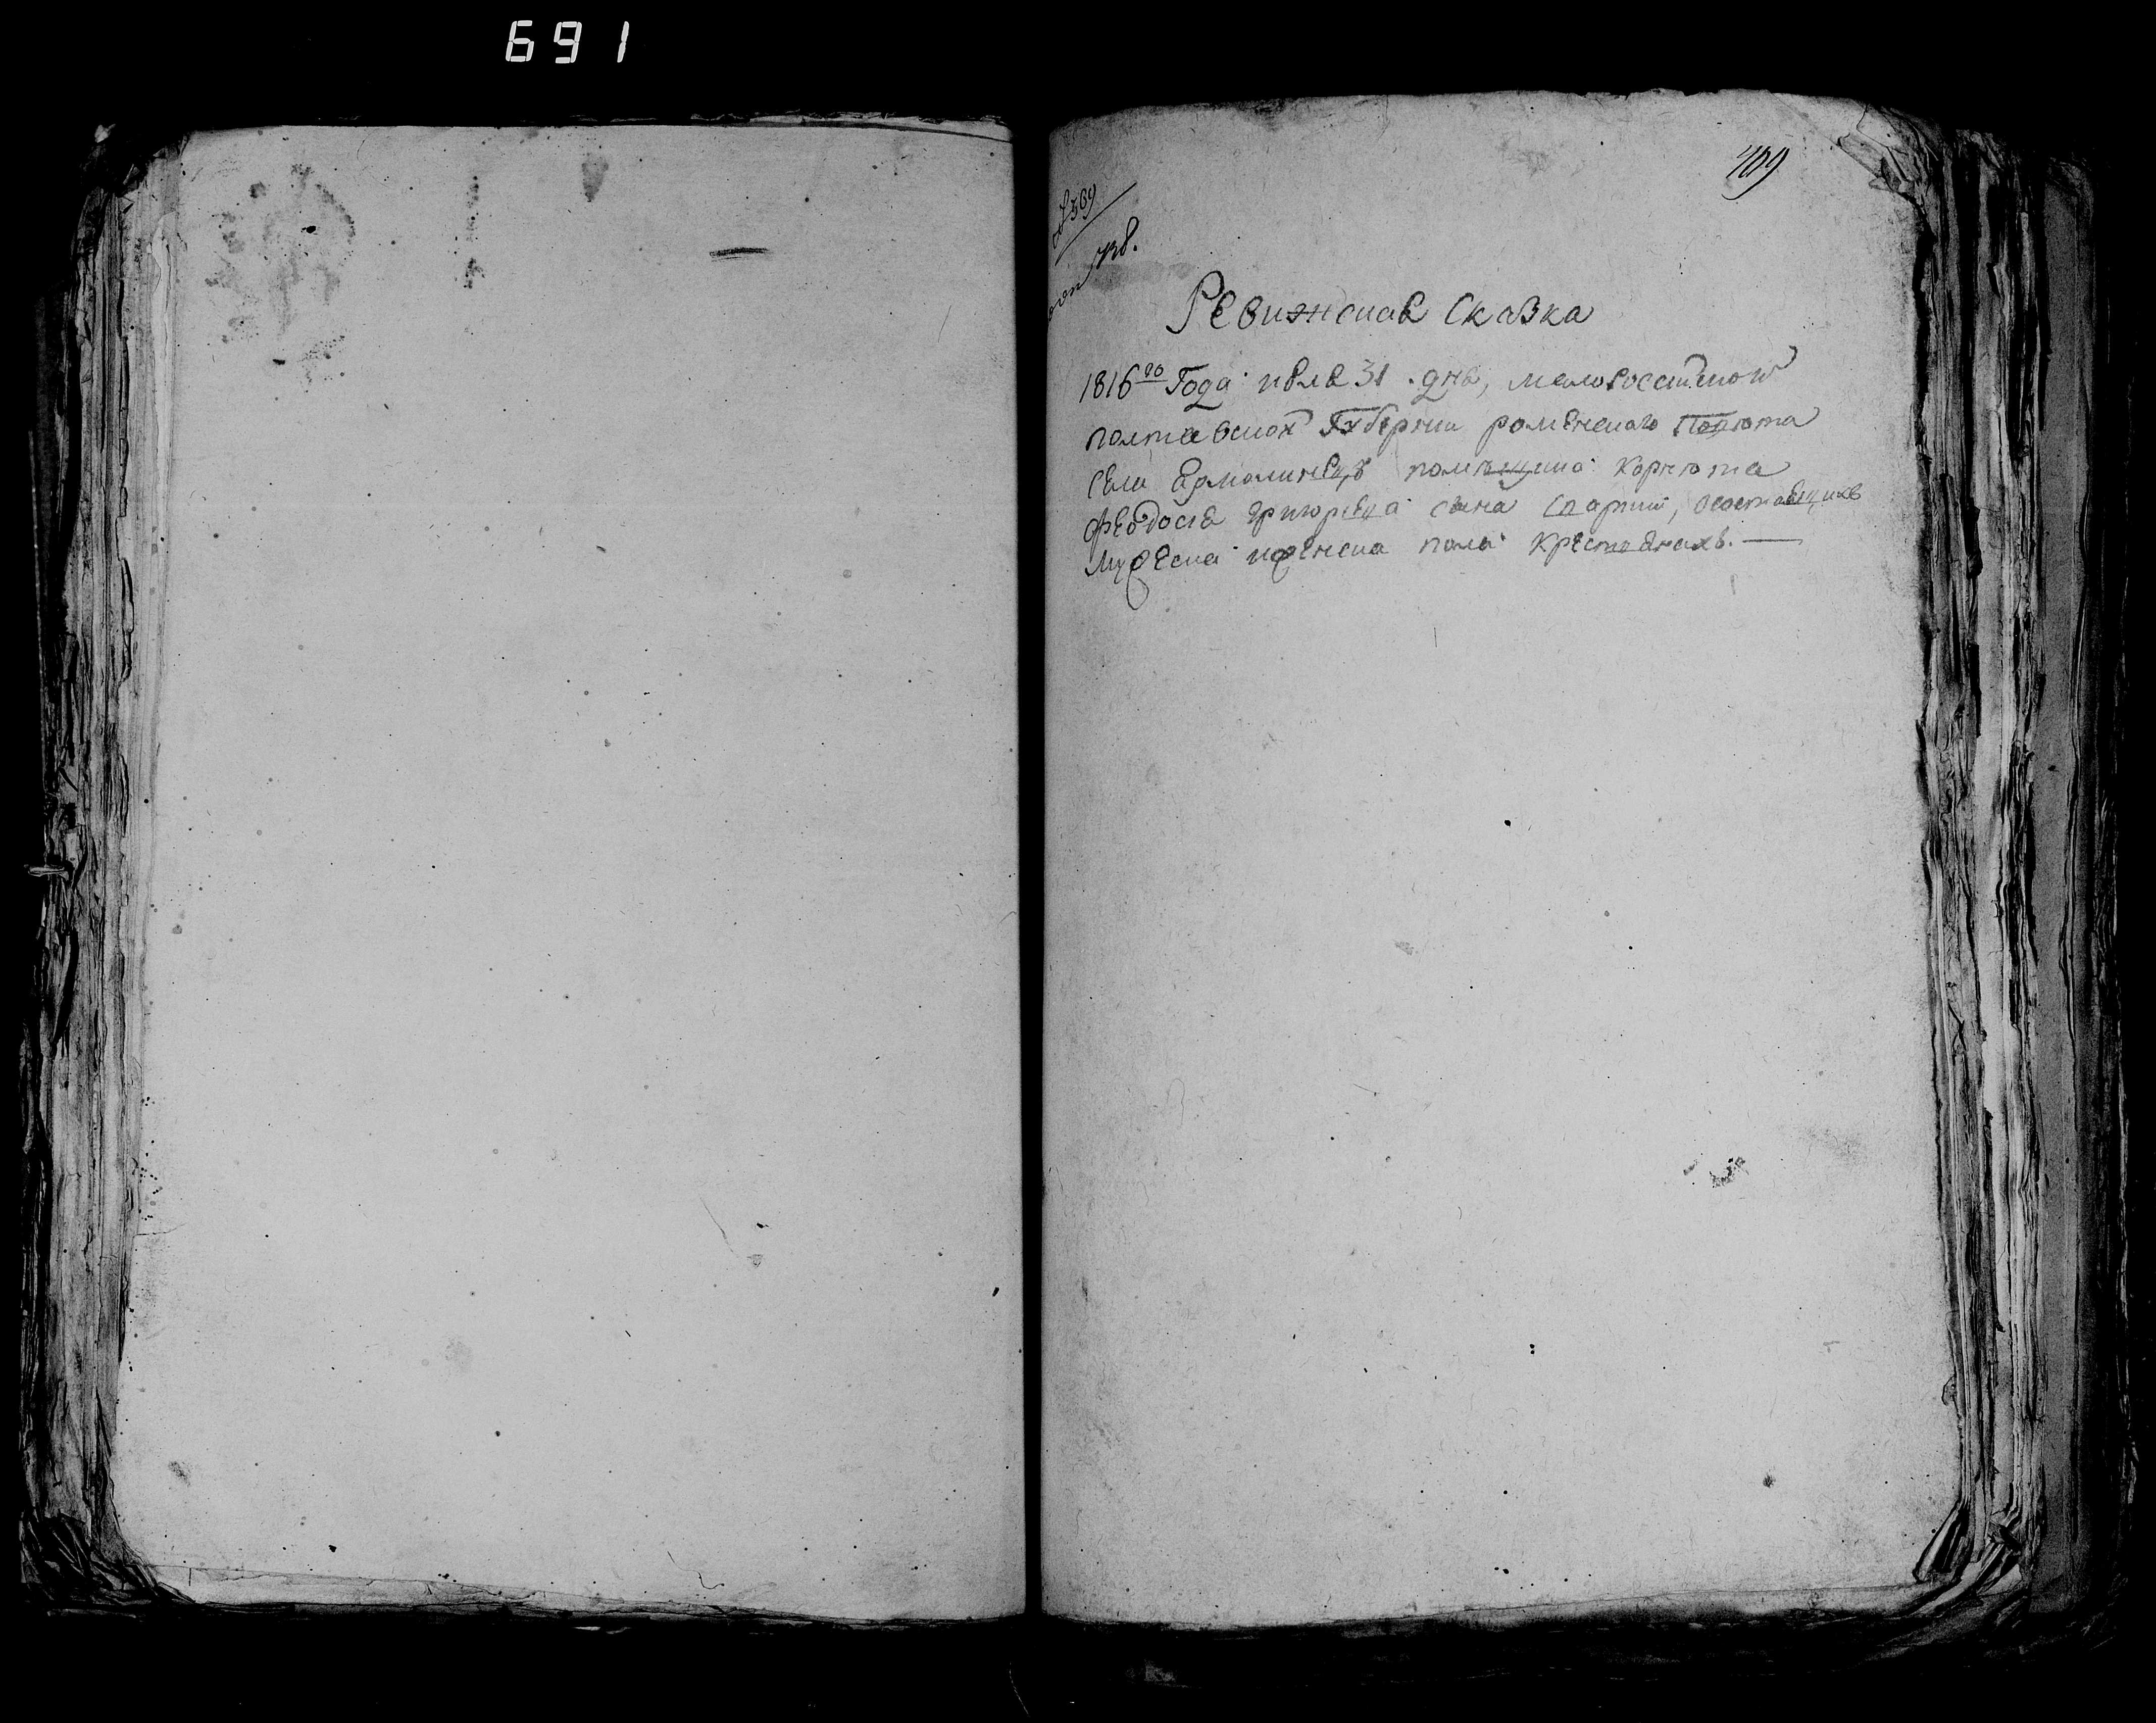 691
409
№ 569
Ревижская Сказка
1816го Года июля 31 дня, малороссийской
полтавской Губернии роменского Повѣта
села Ярмолинецъ помѣщика корнета
Феодосія григорьева сына
мужеска иженска пола крестьянахъ. —